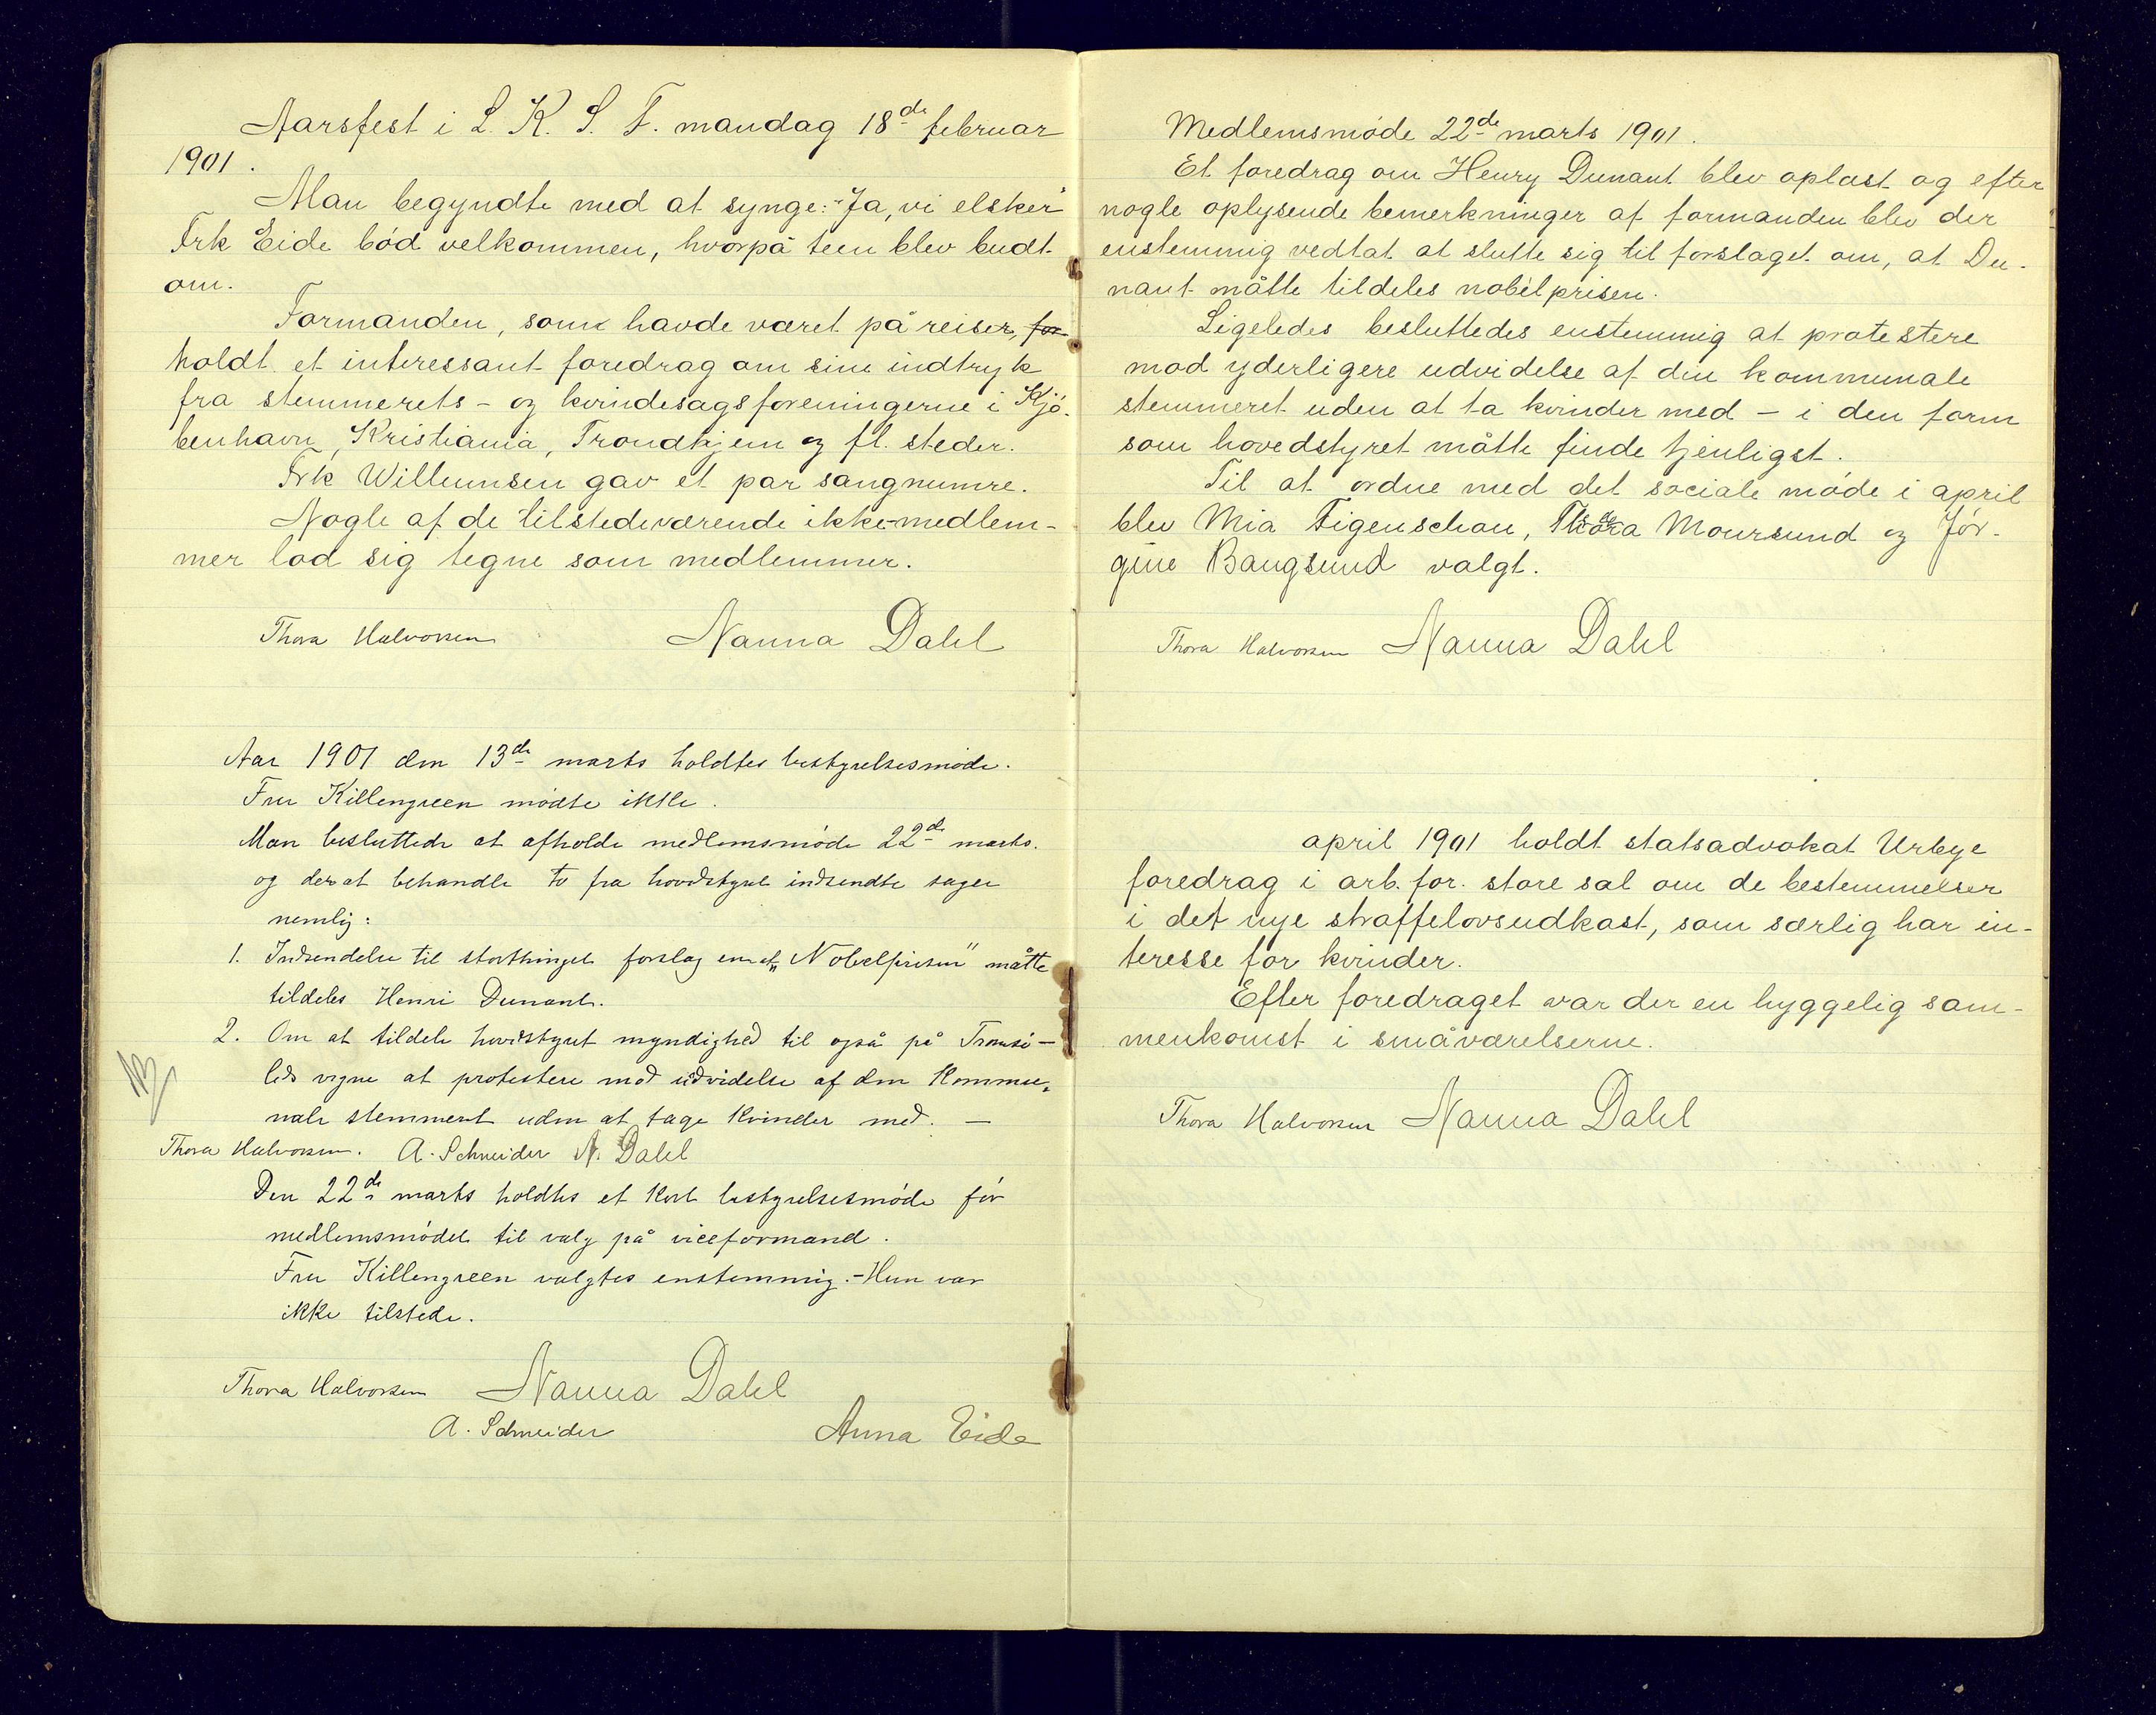 Aarsfest i L. K. S. F. mandag 18de februar
1901.
Man begyndte med at synge: "Ja, vi elsker"
Frk Eide bød velkommen, hvorpå teen blev budt
om.
Formanden, som havde været på reiser, for
holdt et interessant foredrag om sine indtryk
fra stemmerets- og kvindesagsforeningerne i Kjø-
benhavn, Kristiania, Trondhjem og fl. steder.
Frk Willumsen gav et par sangnumre.
Nogle af de tilstedeværende ikke-medlem-
mer lod sig tegne som medlemmer.
Thora Halvorsen Nanna Dahl
Aar 1901 den 13de marts holdtes bestyrelsesmøde.
Fru Killengreen mødte ikke.
Man besluttede at afholde medlemsmøde 22de marts.
og der at behandle to fra hovedstyret indsendte sager
nemlig:
1. Indsendelse til storthinget forslag om at "Nobelprisen" måtte
tildeles Henri Dunant.
2. Om at tildele hovedstyret myndighed til også på Tromsø-
leds vegne at protestere mod udvidelse af den kommu-
nale stemmeret uden at tage kvinder med. —
Thora Halvorsen. A. Schneider N. Dahl
Den 22de marts holdtes et kort bestyrelsesmøde før
medlemsmødet til valg på viceformand.
Fru Killengreen valgtes enstemmig. - Hun var
ikke tilstede.
Thora Halvorsen Nanna Dahl
A. Schneider Anna Eide
Medlemsmøde 22de marts 1901.
Et foredrag om Henry Dunant blev oplæst og efter
nogle oplysende bemerkninger af formanden blev der
enstemmig vedtat at slutte sig til forslaget om, at Du-
nant måtte tildeles nobelprisen.
Ligeledes besluttedes enstemmig at protestere
mod yderligere udvidelse af den kommunale
stemmeret uden at ta kvinder med - i den form
som hovedstyret måtte finde tjenligst.
Til at ordne med det sociale møde i april
blev Mia Figenschou, Thora Moursund og Jør-
gine Bangsund valgt.
Thora Halvorsen Nanna Dahl
april 1901 holdt statsadvokat Urbye
foredrag i arb. for. store sal om de bestemmelser
i det nye straffelovsudkast, som særlig har in-
teresse for kvinder.
Efter foredraget var der en hyggelig sam-
menkomst i småværelserne.
Thora Halvorsen Nanna Dahl